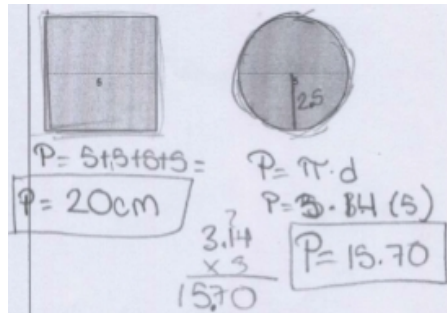 5
P= 5+5+5+5=
P= 20cm
2.5
P= π·d
P= 3.14 (5)
3.14
x 5
15.70
P= 15.70